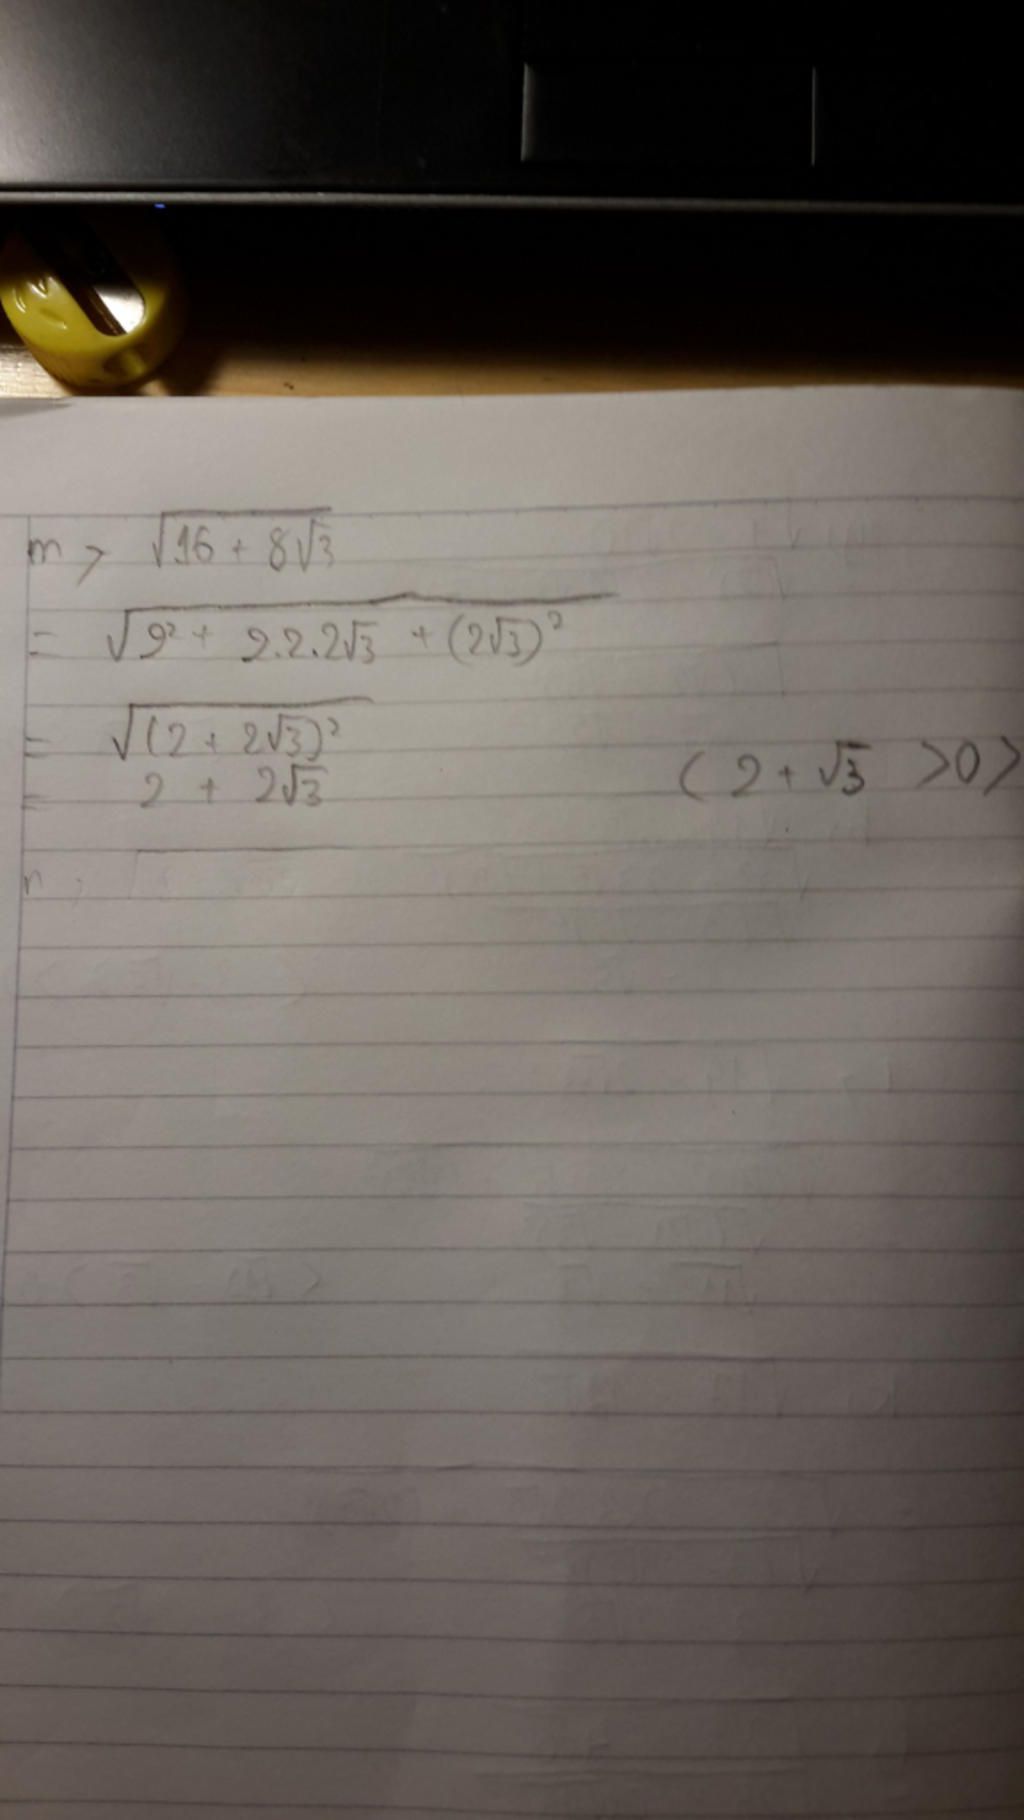 m> √16 + 8√3
= √2² + 2.2.2√3 + (2√3)²
= √(2 + 2√3)²
= 2 + 2√3 (2 + √3 >0>
n